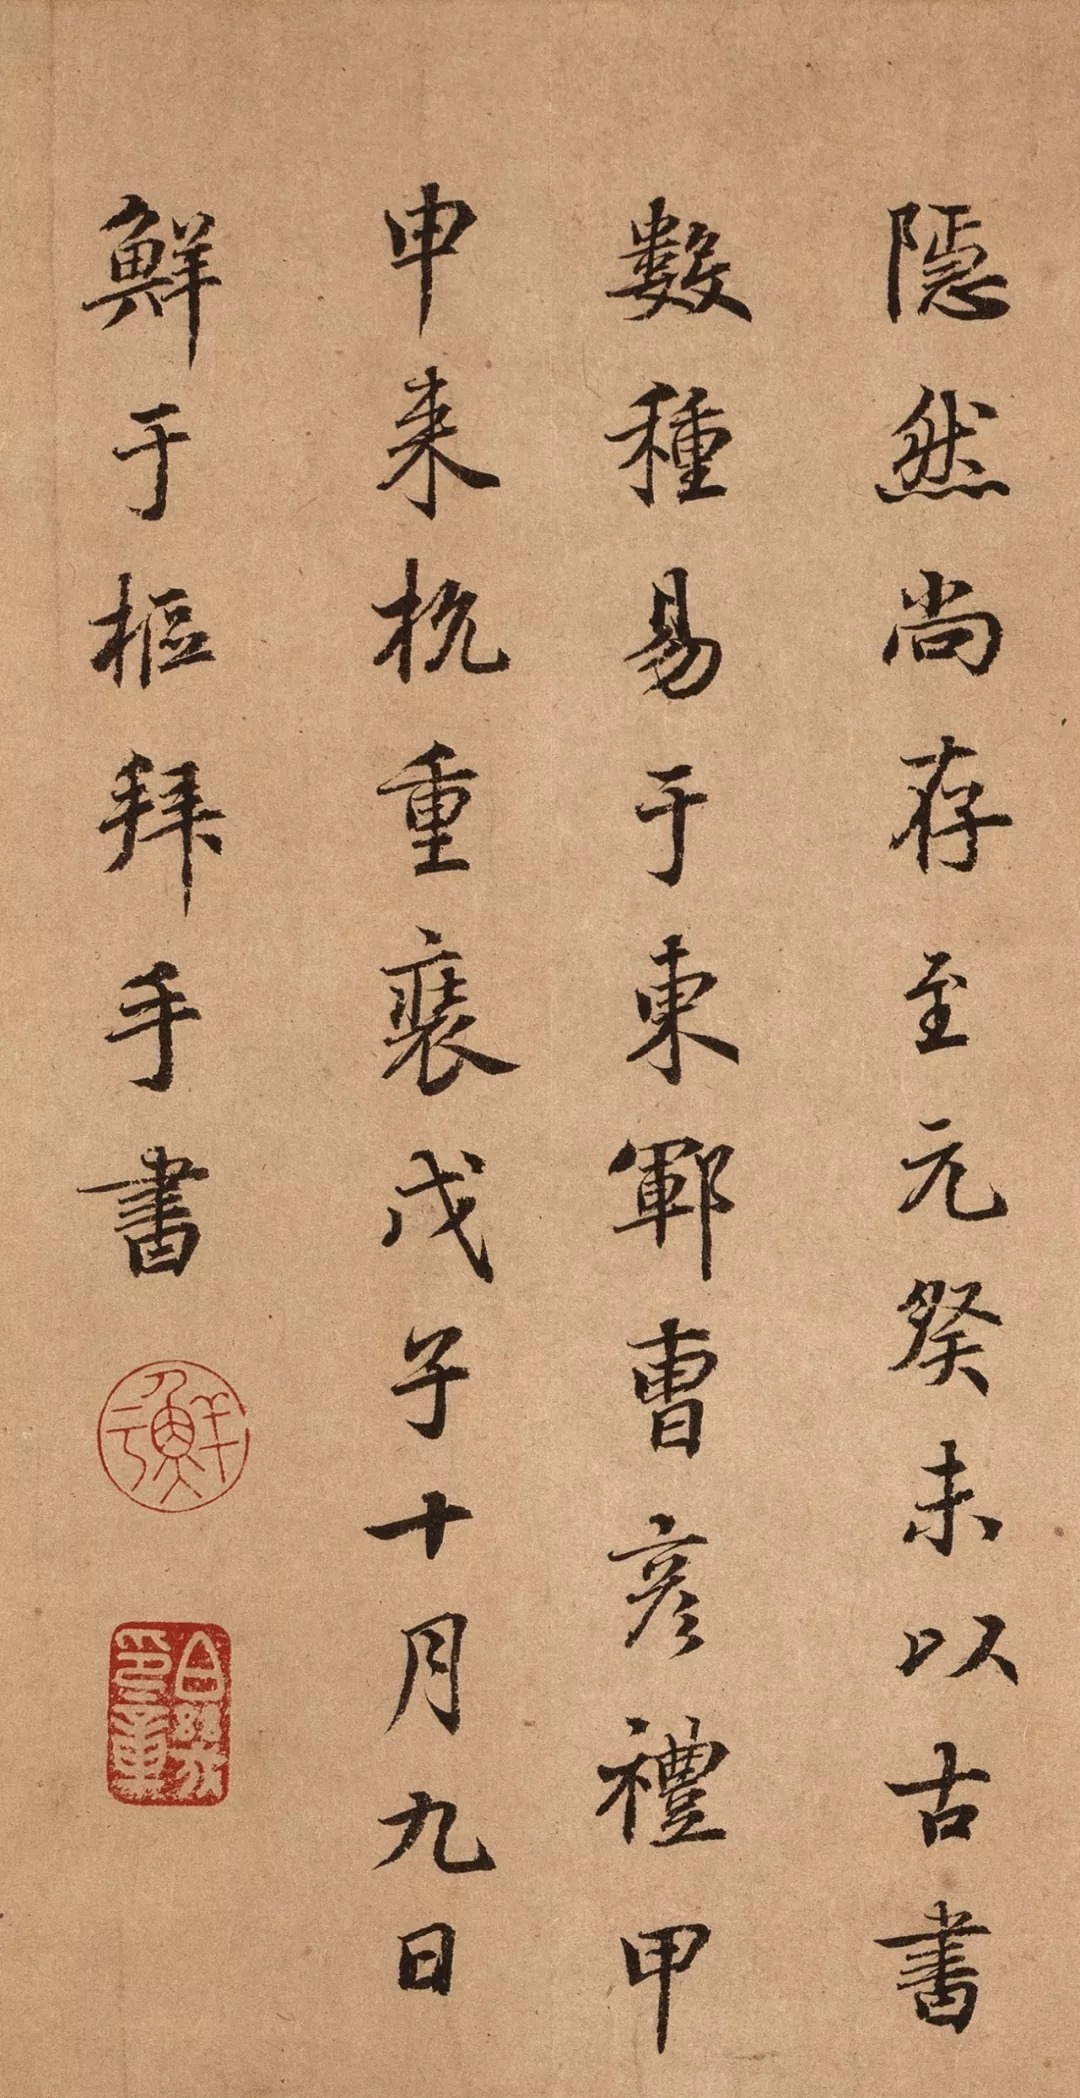 隱然尚存至元癸未以古書
數種易于東鄆曹彥禮甲
申來杭重裝戊子十月九日
鮮于樞拜手書
鮮于